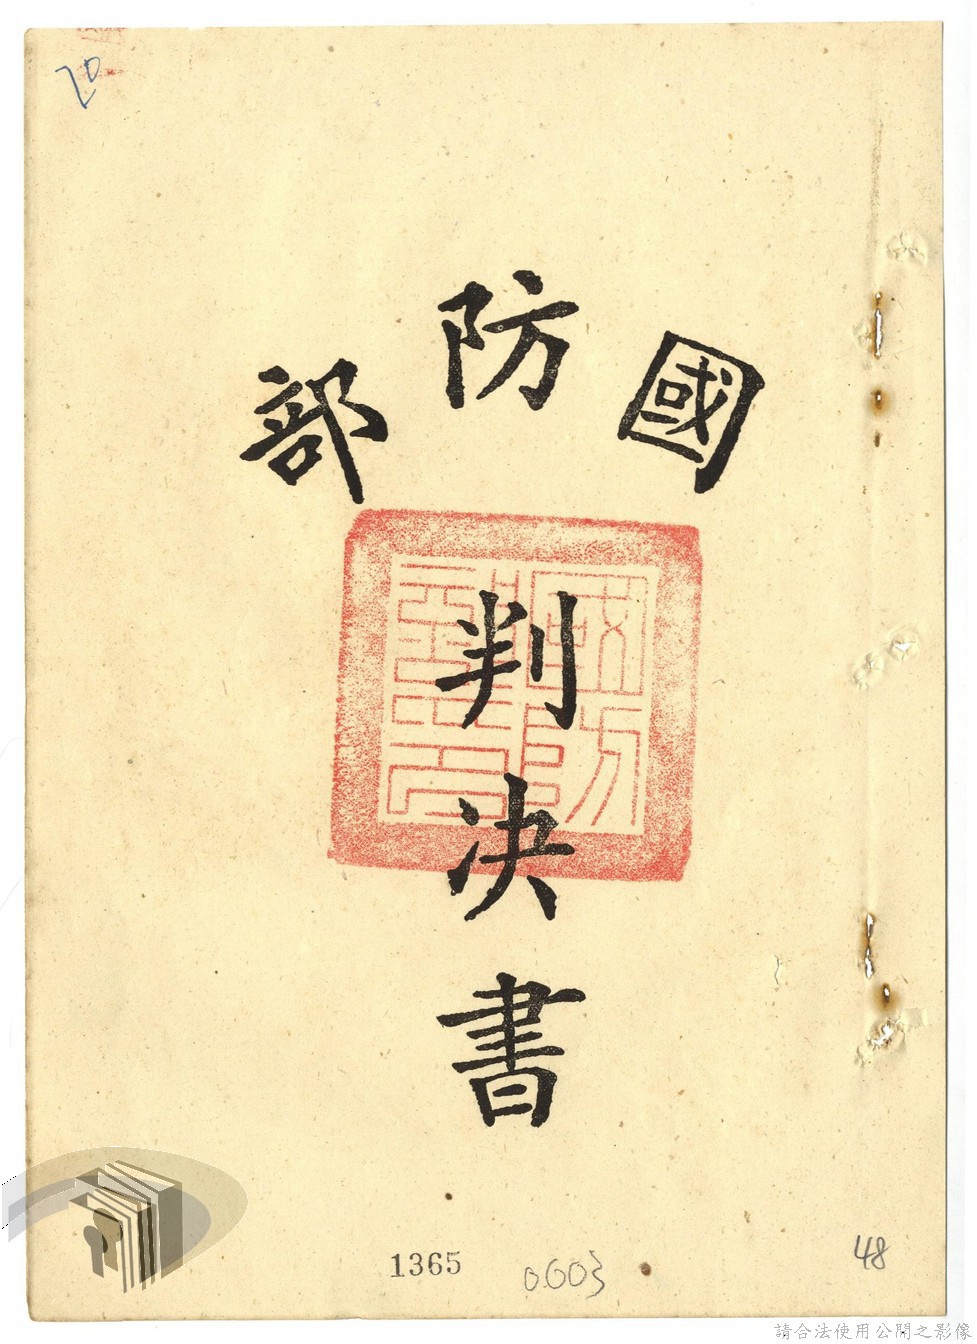 20
國防部
判決書
國防部印
1365
0.003
48
請合法使用公開之影像